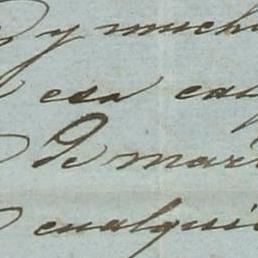 y mucho
esa cas
De mar
cualqui